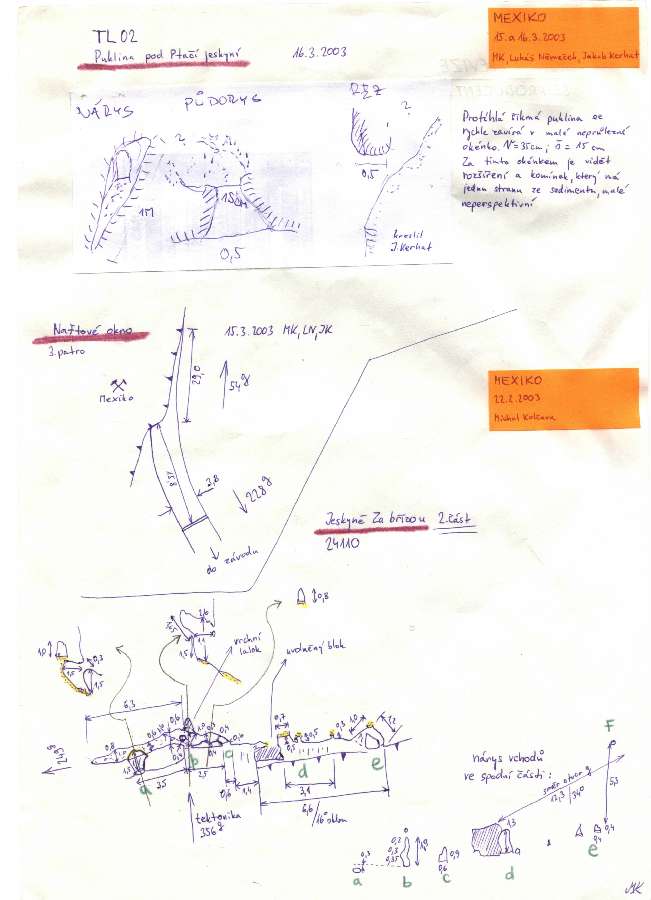 TL02
Puklina pod Ptačí jeskyní
16.3.2003
MEXIKO
15. a 16.3.2003
MK, Lukáš Němeček, Jakub Kerhat
NÁRYS
PŮDORYS
ŘEZ
?
?
1M
15CM
0,5
0,5
kreslil
J. Kerhat
Protáhlá šikmá puklina se
rychle zavírá v malé neprůlezné
okénko. V=35cm; š = 15 cm
Za tímto okénkem je vidět
rozšíření a komínek, který má
jednu stranu ze sedimentu, málé
neperspektivní
Naftové okno
3. patro
15.3.2003 MK, LN, JK
Mexiko
29,0
54g
15,8
2,8
228g
do závodu
MEXIKO
22.2.2003
Michal Kolčava
Jeskyně Za břízou 2. část
24110
0,8
vrchní
lalok
uvolněný blok
2,0
1,1
1,5
1,0
1,5
0,3
1,5
6,3
249g
0,8
0,6
0,6
1,0
0,4
0,4
1,5
3,5
2,5
0,6
1,4
0,7
0,5
0,5
0,3
1,0
1,2
3,1
6,6
16° úklon
a
b
c
d
e
tektonika
356g
nárys vchodů
ve spodní části:
směr otvor g
12,3 / 340
F
5,3
0,3
0,2
0,3
0,35
0,9
0,6
1,3
0,4
0,4
a
b
c
d
e
MK